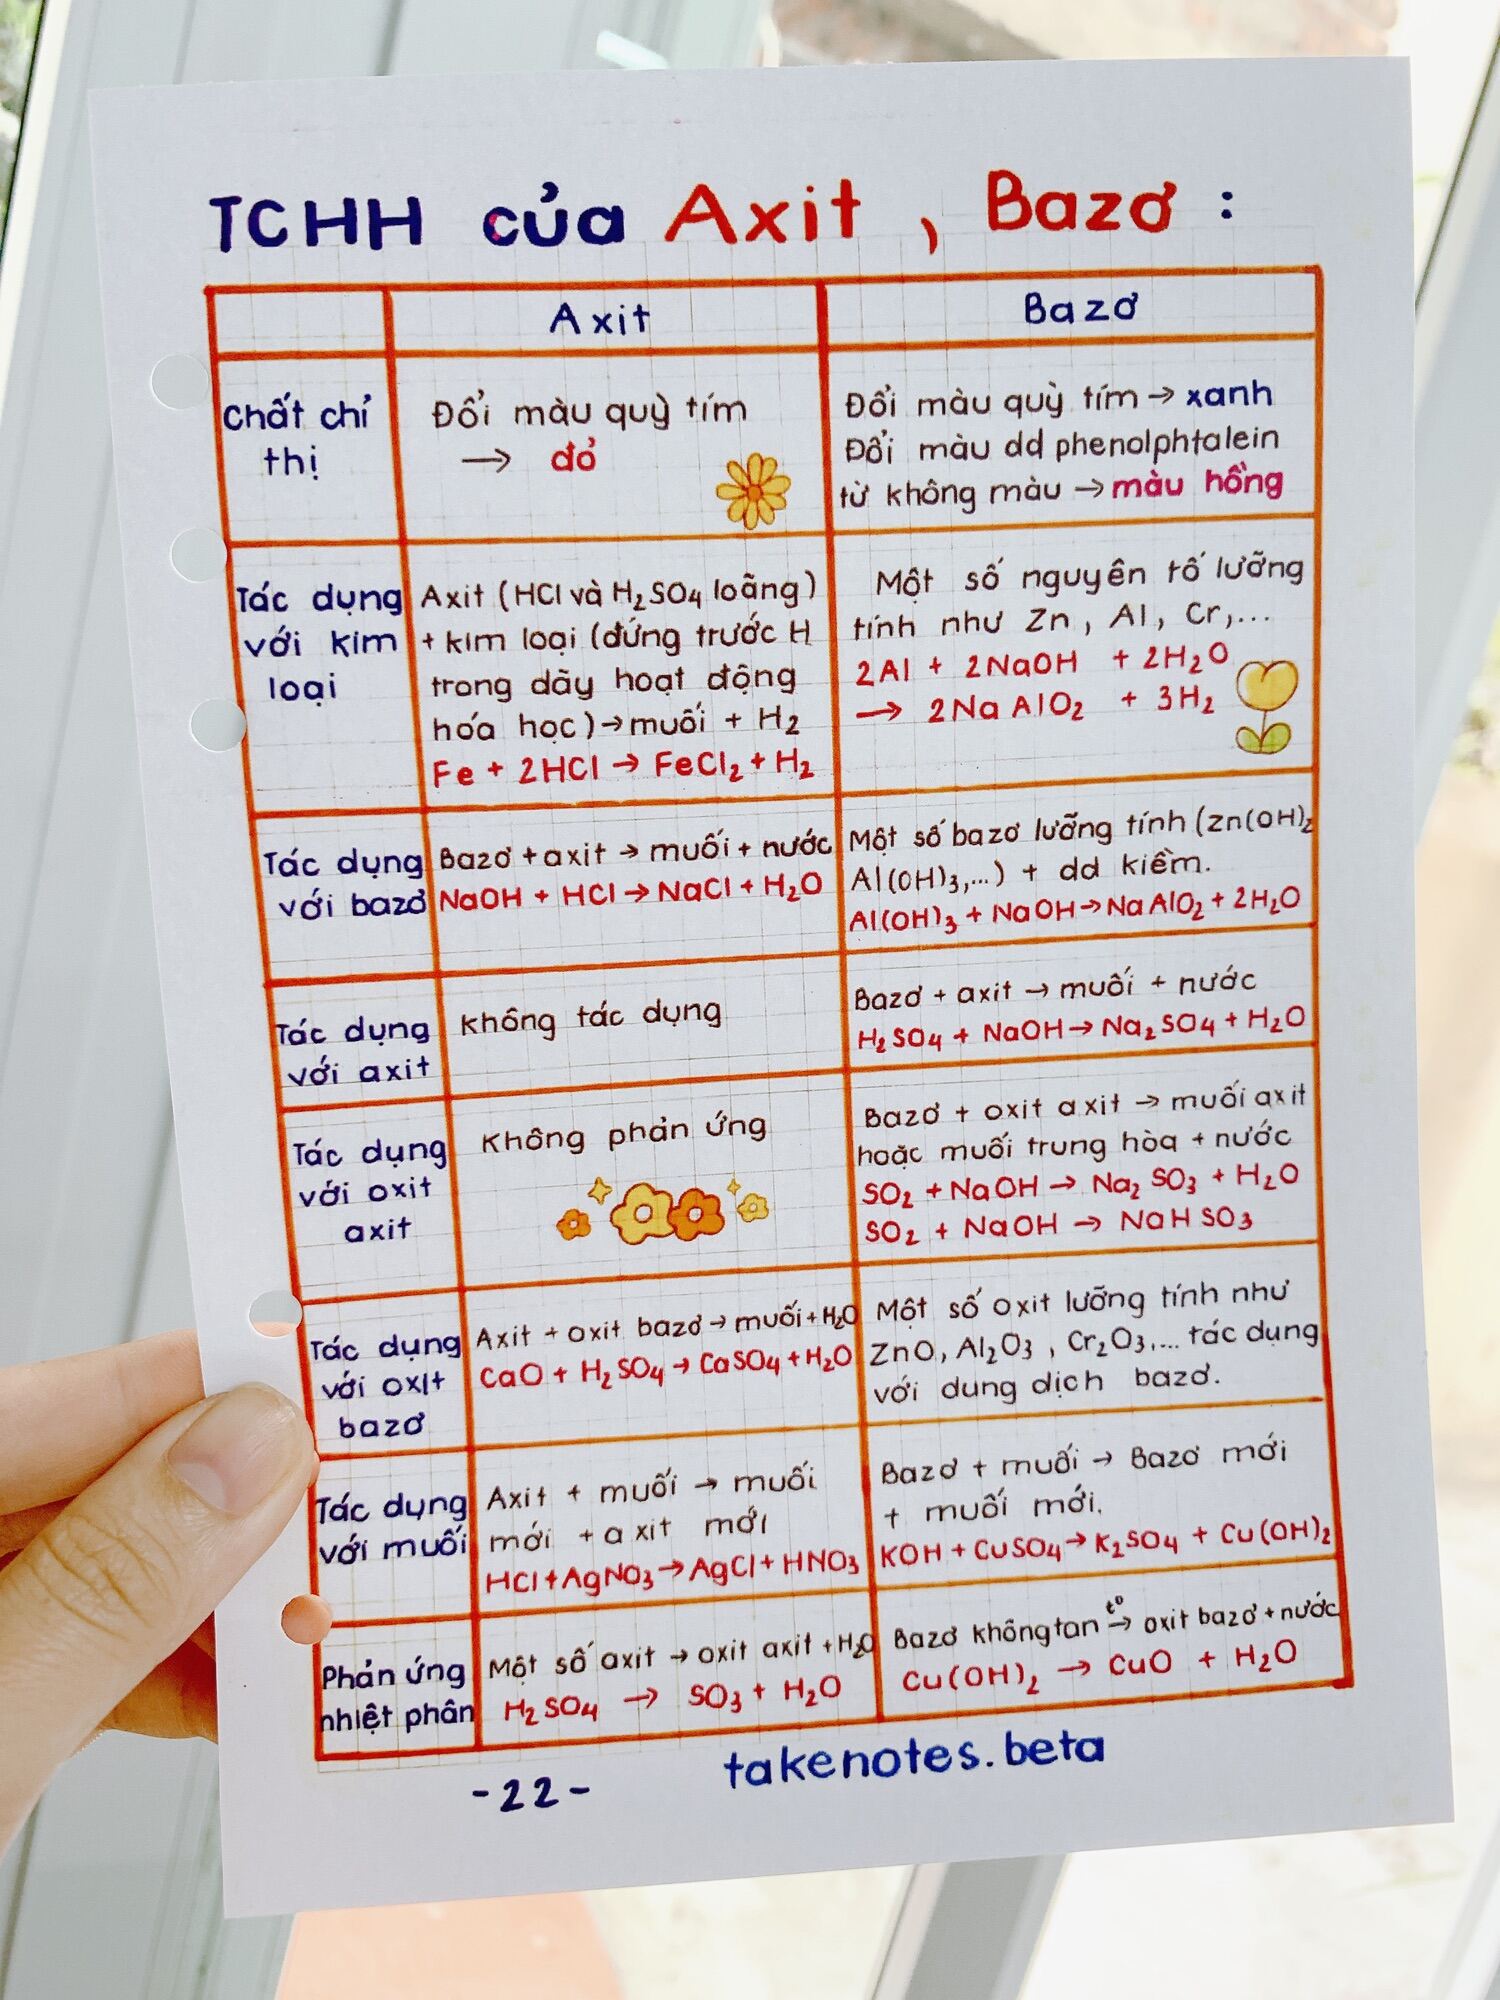 TCHH của Axit, Bazơ:
Axit
Bazơ
Chất chỉ
thị
Đổi màu quỳ tím
→ đỏ
Đổi màu quỳ tím → xanh
Đổi màu dd phenolphtalein
từ không màu → màu hồng
Tác dụng
với kim
loại
Axit (HCl và H₂SO₄ loãng)
+ kim loại (đứng trước H
trong dãy hoạt động
hóa học) → muối + H₂
Fe + 2HCl → FeCl₂ + H₂
Một số nguyên tố lưỡng
tính như Zn, Al, Cr,...
2Al + 2NaOH + 2H₂O
→ 2NaAlO₂ + 3H₂
Tác dụng
với bazơ
Bazơ + axit → muối + nước
NaOH + HCl → NaCl + H₂O
Một số bazơ lưỡng tính (Zn(OH)₂
Al(OH)₃,...) + dd kiềm.
Al(OH)₃ + NaOH → NaAlO₂ + 2H₂O
Tác dụng
với axit
Không tác dụng
Bazơ + axit → muối + nước
H₂SO₄ + NaOH → Na₂SO₄ + H₂O
Tác dụng
với oxit
axit
Không phản ứng
Bazơ + oxit axit → muối axit
hoặc muối trung hòa + nước
SO₂ + NaOH → Na₂SO₃ + H₂O
SO₂ + NaOH → NaHSO₃
Tác dụng
với oxit
bazơ
Axit + oxit bazơ → muối + H₂O
CaO + H₂SO₄ → CaSO₄ + H₂O
Một số oxit lưỡng tính như
ZnO, Al₂O₃, Cr₂O₃,... tác dụng
với dung dịch bazơ.
Tác dụng
với muối
Axit + muối → muối
mới + axit mới
HCl + AgNO₃ → AgCl + HNO₃
Bazơ + muối → Bazơ mới
+ muối mới.
KOH + CuSO₄ → K₂SO₄ + Cu(OH)₂
Phản ứng
nhiệt phân
Một số axit → oxit axit + H₂O
H₂SO₄ → SO₃ + H₂O
Bazơ không tan t°→ oxit bazơ + nước
Cu(OH)₂ → CuO + H₂O
-22-
takenotes.beta